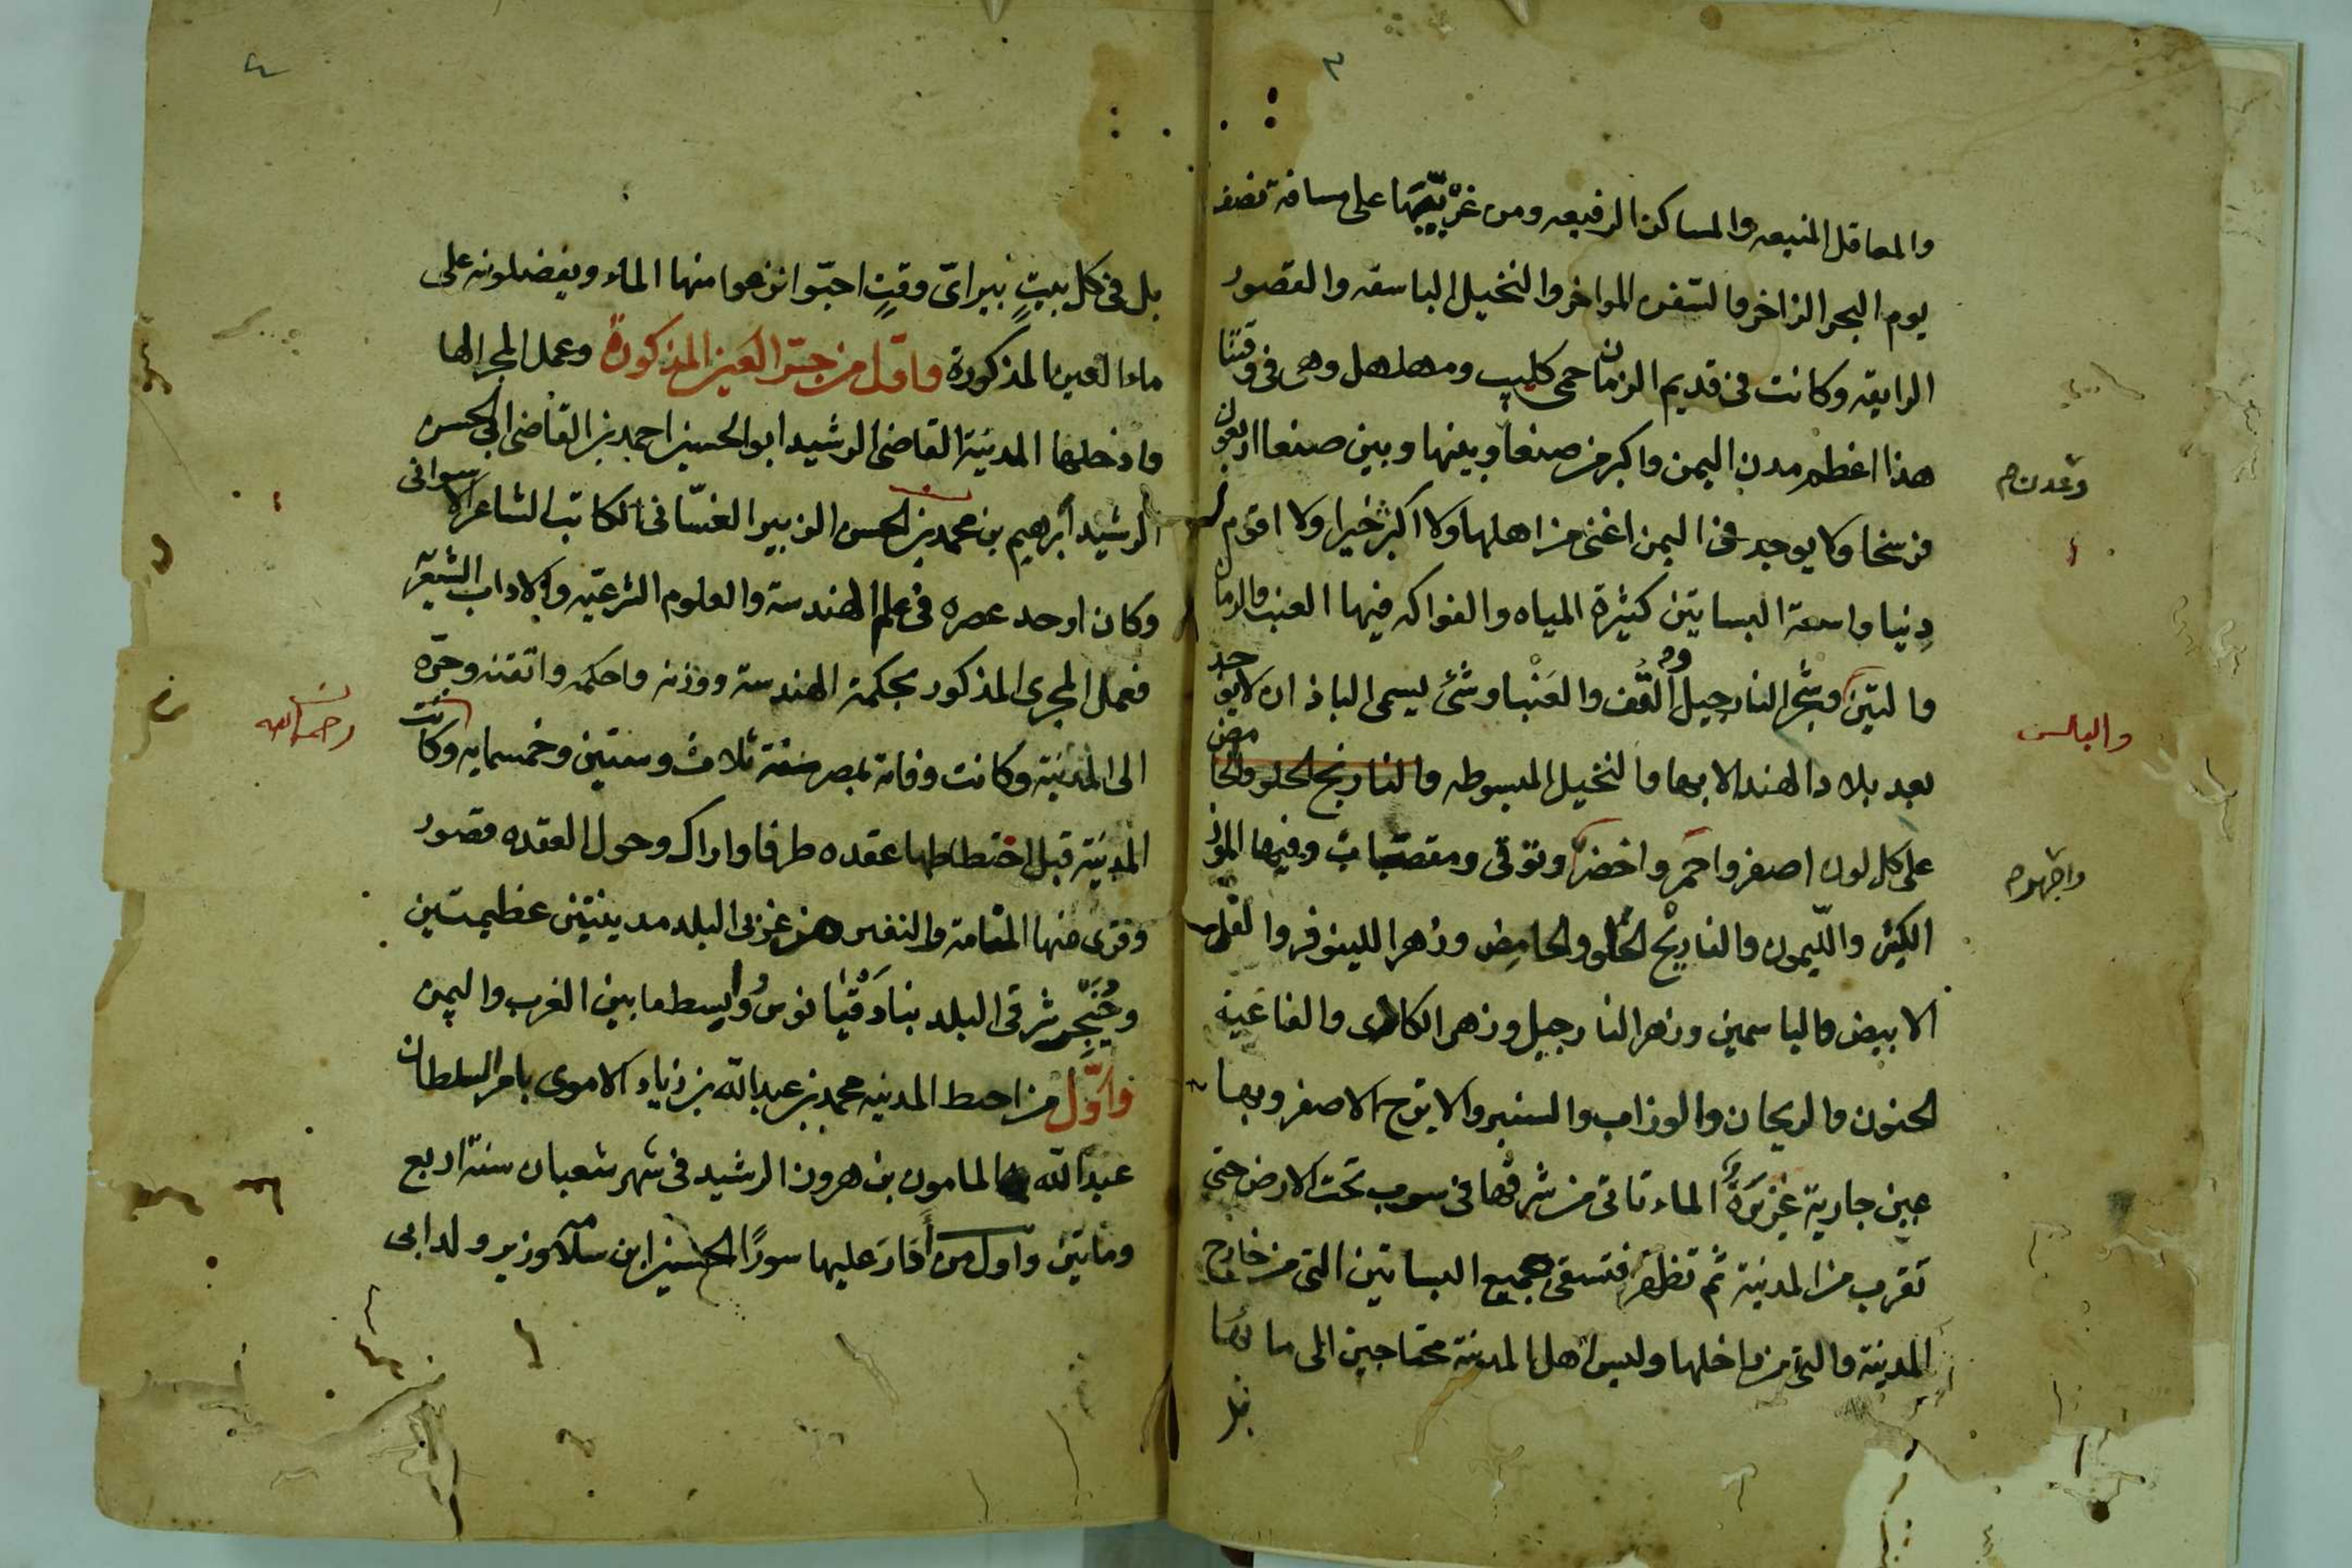 ٣
والمعاقل المنيعه والمساكن الرفيعه ومن غربيّها على مسافة نصف
يوم البحر الزاخر والسفن المواخر والنخيل الباسقه والقصور
الرايقه وكانت فى قديم الزمان حمى كليب ومهلهل وهى فى وقتنا
هذا اعظم مدن اليمن واكبر من صنعا وبينها وبين صنعا اربعون
فرسخا ولا يوجد فى اليمن اغنى من اهلها ولا اكثر خيرا ولا اقوم
دنيا واسعة البساتين كثيرة المياه والفواكه فيها العنب والرمان
والتين وشجر النارجيل والعنبا وشئ يسمى الباذان لا يوجد
بعد بلاد الهند الا بها والنخيل المبسوطه والنارنج الحلو والحامض
على كل لون اصفر واحمر واخضر وفيها الموز
الكثير والليمون والنارنج الحلو والحامض وزهر اللينوفر
الابيض والياسمين وزهر النارجيل وزهر الكادى والفاغية
الحنون والريحان والوزاب والسنبر والاترج الاصفر وبها
عين جارية غزيرة الماء تاتى من شرقها فى سرب تحت الارض حتى
تقرب من المدينة ثم تظهر فتسقى جميع البساتين التى من خارج
المدينة والتى من داخلها وليس اهل المدينة محتاجين الى مائها
بل
وعدن
والبالس
٤
بل فى كل بيتٍ بير اىّ وقتٍ احبّوا نزهوا منها الماء ويفضلونه على
ماء العين المذكورة واول من جرّ العين المذكورة وعمل المجرا لها
وادخلها المدينة القاضى الرشيد ابو الحسين احمد بن القاضى ابى الحسن
الرشيد ابرهيم بن محمد بن الحسن الزبير الغسّانى الكاتب الشاعر الاسوانى
وكان اوحد عصره فى علم الهندسة والعلوم الشرعيّه والاداب الشعريّه
فعمل المجرى المذكور بحكمة الهندسة ووزنه واحكمه واتقنه وجرّه
الى المدينة وكانت وفاته بمصر سنة ثلاث وستين وخمسمايه وكانت
المدينة قبل اختطاطها عقده طرفا واراك وحول العقده قصور
وقرى منها المنامة والنقير من غربى البلد مدينتين عظيمتين
شرقى البلد واليسط ما بين الغرب واليمن
فاوّل من اختط المدينه محمد بن عبد الله بن زياد الاموى بامر السلطان
عبد الله المامون بن هرون الرشيد فى شهر شعبان سنة اربع
ومايتين واول من أدار عليها سورًا الحسين ابن سلامه وزير ولد ابى
رحمه الله